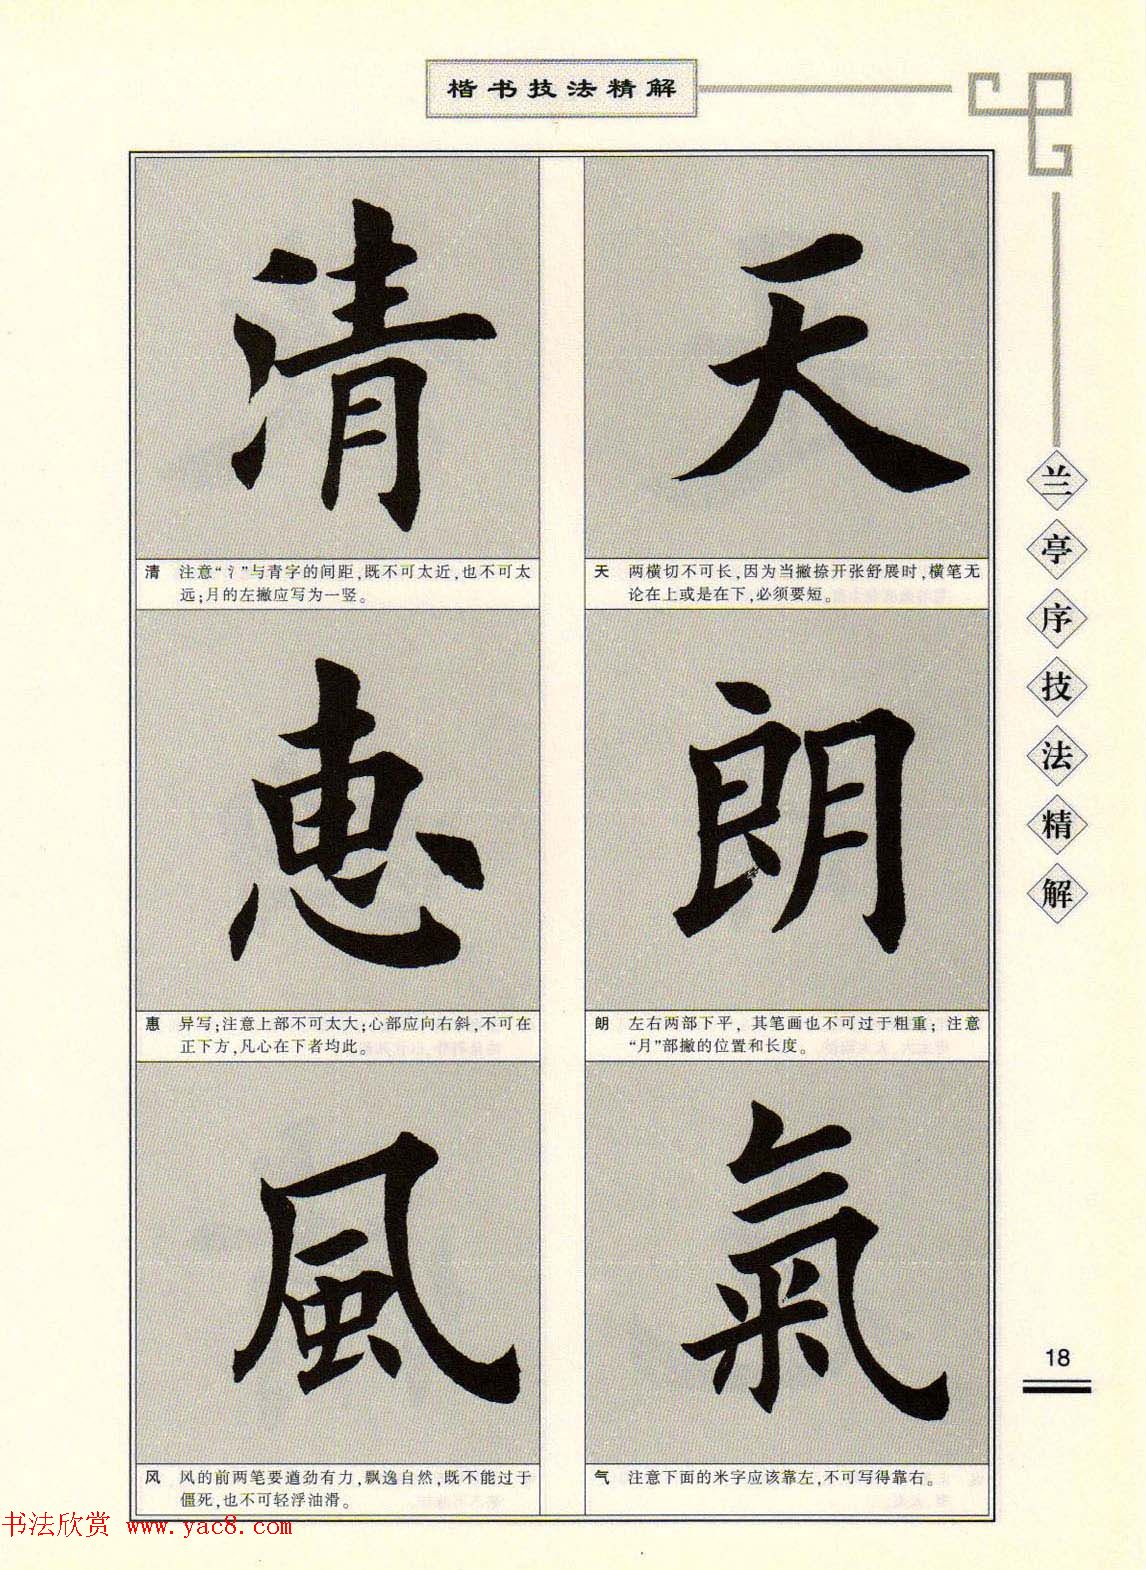 楷书技法精解
天
天 两横切不可长,因为当撇捺开张舒展时,横笔无
论在上或是在下,必须要短。
朗
朗 左右两部下平，其笔画也不可过于粗重；注意
“月”部撇的位置和长度。
氣
气 注意下面的米字应该靠左,不可写得靠右。
清
清 注意“氵”与青字的间距,既不可太近,也不可太
远;月的左撇应写为一竖。
惠
惠 异写;注意上部不可太大;心部应向右斜,不可在
正下方,凡心在下者均此。
風
风 风的前两笔要遒劲有力,飘逸自然,既不能过于
僵死,也不可轻浮油滑。
兰亭序技法精解
18
书法欣赏 www.yac8.com